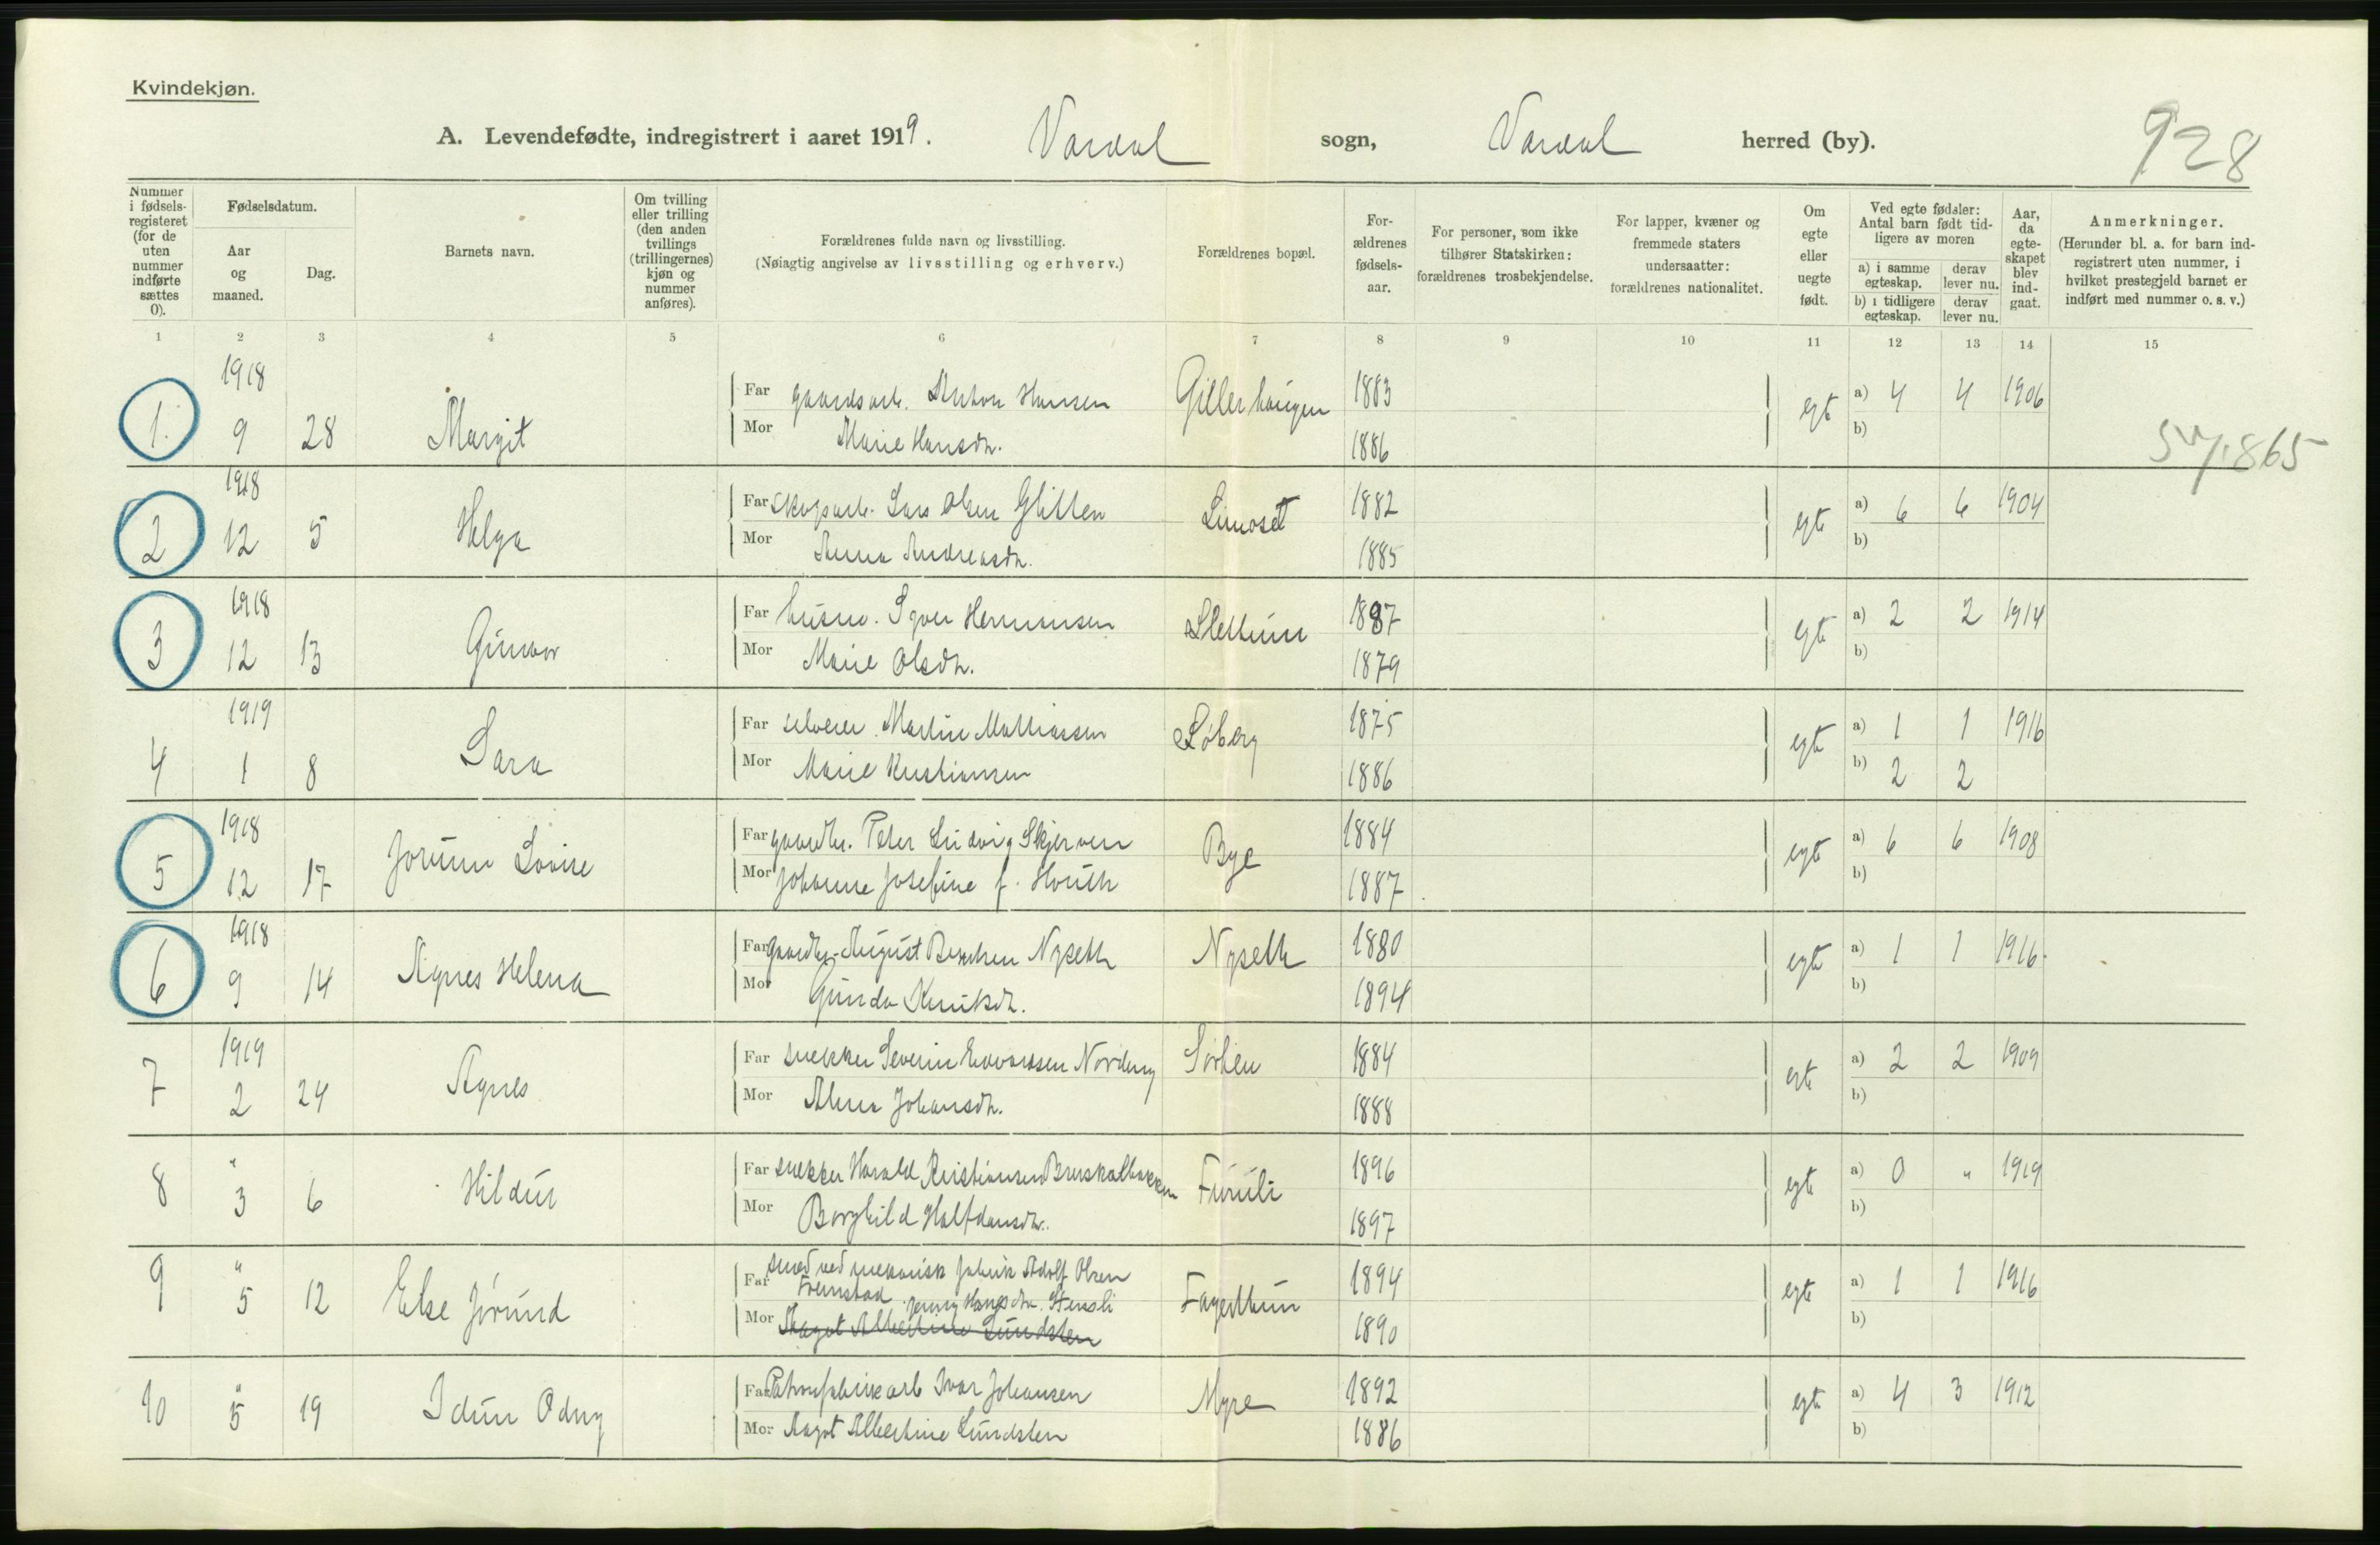 Kvindekjøn.
A. Levendefødte, indregistrert i aaret 1919. Vardal sogn, Vardal herred (by).
928
Nummer i fødsels-registeret (for de uten nummer indførte sættes 0).
Fødselsdatum.
Aar og maaned.
Dag.
Barnets navn.
Om tvilling eller trilling (den anden tvillings (trillingernes) kjøn og nummer anføres).
Forældrenes fulde navn og livsstilling.
(Nøiagtig angivelse av livsstilling og erhverv.)
Forældrenes bopæl.
For-ældrenes fødsels-aar.
For personer, som ikke tilhører Statskirken: forældrenes trosbekjendelse.
For lapper, kvæner og fremmede staters undersaatter: forældrenes nationalitet.
Om egte eller uegte født.
Ved egte fødsler: Antal barn født tid-ligere av moren
a) i samme egteskap.
derav lever nu.
b) i tidligere egteskap.
derav lever nu.
Aar, da egte-skapet blev ind-gaat.
Anmerkninger.
(Herunder bl. a. for barn ind-registrert uten nummer, i hvilket prestegjeld barnet er indført med nummer o. s. v.)
1 2 3 4 5 6 7 8 9 10 11 12 13 14 15
1918
1. 9 28 Margit
Far gaardsarb. Anton Hansen Gillerhaugen 1883 egte a) 4 4 1906
Mor Marie Hansdtr. 1886 b)
1918
2 12 5 Helga
Far skogsarb. Lars Olsen Glitten Limoset 1882 egte a) 6 6 1904
Mor Anna Andreasdtr. 1885 b)
1918
3 12 13 Gunvor
Far husm. Syver Hermansen Slettum 1887 egte a) 2 2 1914
Mor Marie Olsdtr. 1879 b)
1919
4 1 8 Sara
Far selveier Martin Mathiassen Løberg 1875 egte a) 1 1 1916
Mor Marie Kristiansen 1886 b) 2 2
1918
5 12 17 Jorunn Lovise
Far gaardbr. Peter Ludvig Skjerven Bye 1884 egte a) 6 6 1908
Mor Johanne Josefine f. 1887 b)
1918
6 9 14 Agnes Helena
Far gaardbr. August Nyseth Nyseth 1880 egte a) 1 1 1916.
Mor Gunda 1894 b)
1919
7 2 24 Agnes
Far snekker Severin Edvardsen Nordeng Sørlien 1884 egte a) 2 2 1909
Mor Alma Johansdtr. 1888 b)
8 " 3 6 Hildur
Far snekker Harald Kristiansen Bruskalbakken Furuli 1896 egte a) 0 " 1919
Mor Borghild Halfdansdtr. 1897 b)
9 " 5 12 Else Jørund
Far smed ved mekanisk fabrik Adolf Olsen Fremstad Fagerthun 1894 egte a) 1 1 1916
Jenny Hansdtr. Stensli
Mor Aagot Albertine Lundsten 1890 b)
10 " 5 19 Idun Odny
Far Patronfabrikarb Ivar Johansen Myre 1892 egte a) 4 3 1912
Mor Aagot Albertine Lundsten 1886 b)